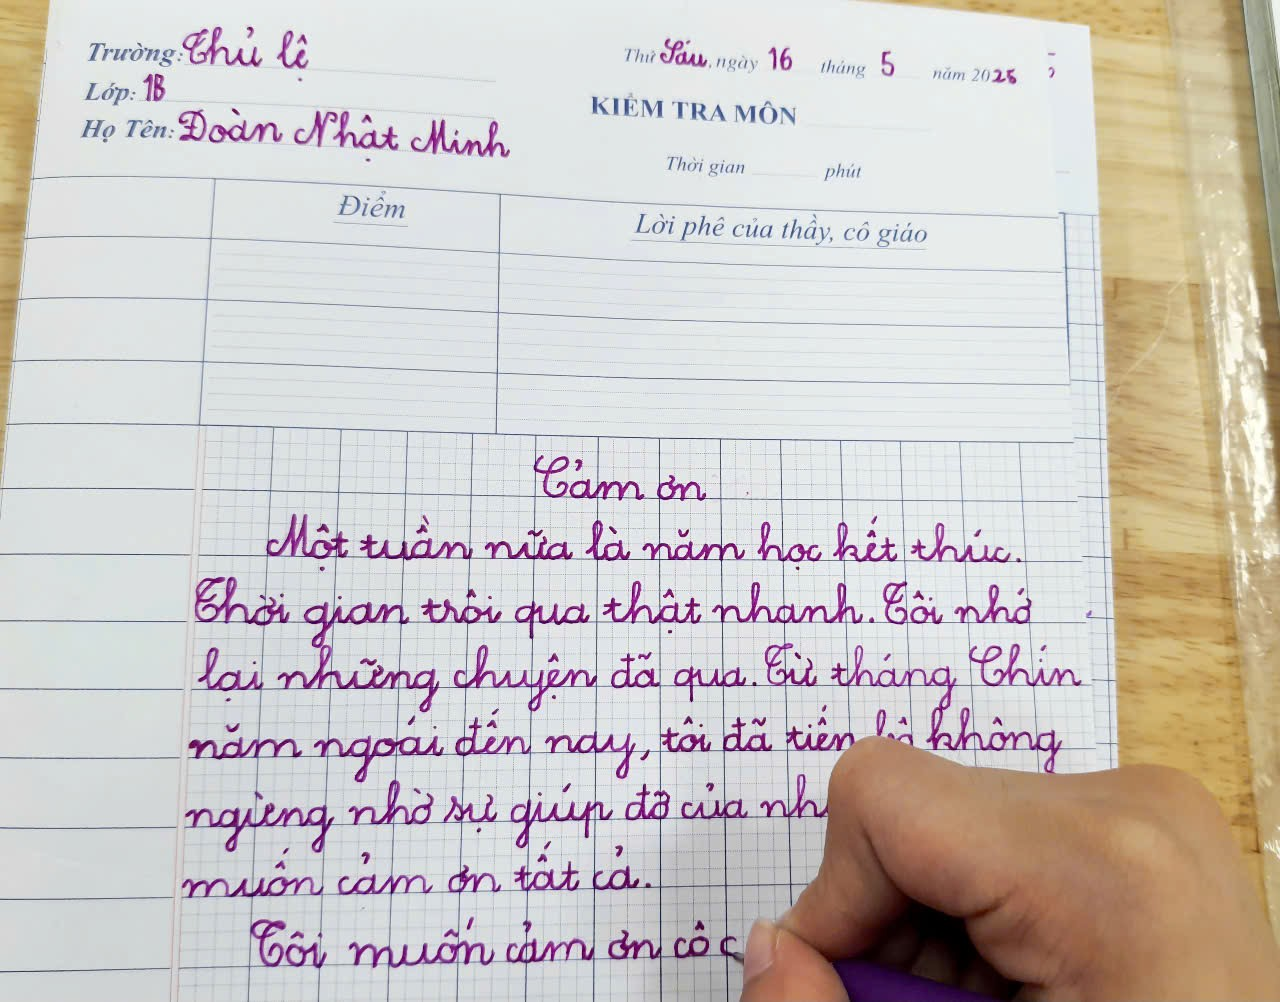 Trường: Thủ lệ
Thứ Sáu, ngày 16 tháng 5 năm 2025
Lớp: 1B
KIỂM TRA MÔN
Họ Tên: Đoàn Nhật Minh
Thời gian phút
Điểm
Lời phê của thầy, cô giáo
Cảm ơn
Một tuần nữa là năm học kết thúc.
Thời gian trôi qua thật nhanh. Tôi nhớ
lại những chuyện đã qua. Từ tháng Chín
năm ngoái đến nay, tôi đã tiến không
ngừng nhờ sự giúp đỡ của
muốn cảm ơn tất cả.
Tôi muốn cảm ơn cô